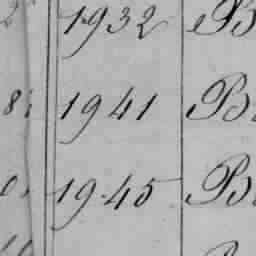 1932 B
8 1941 B
1945 B